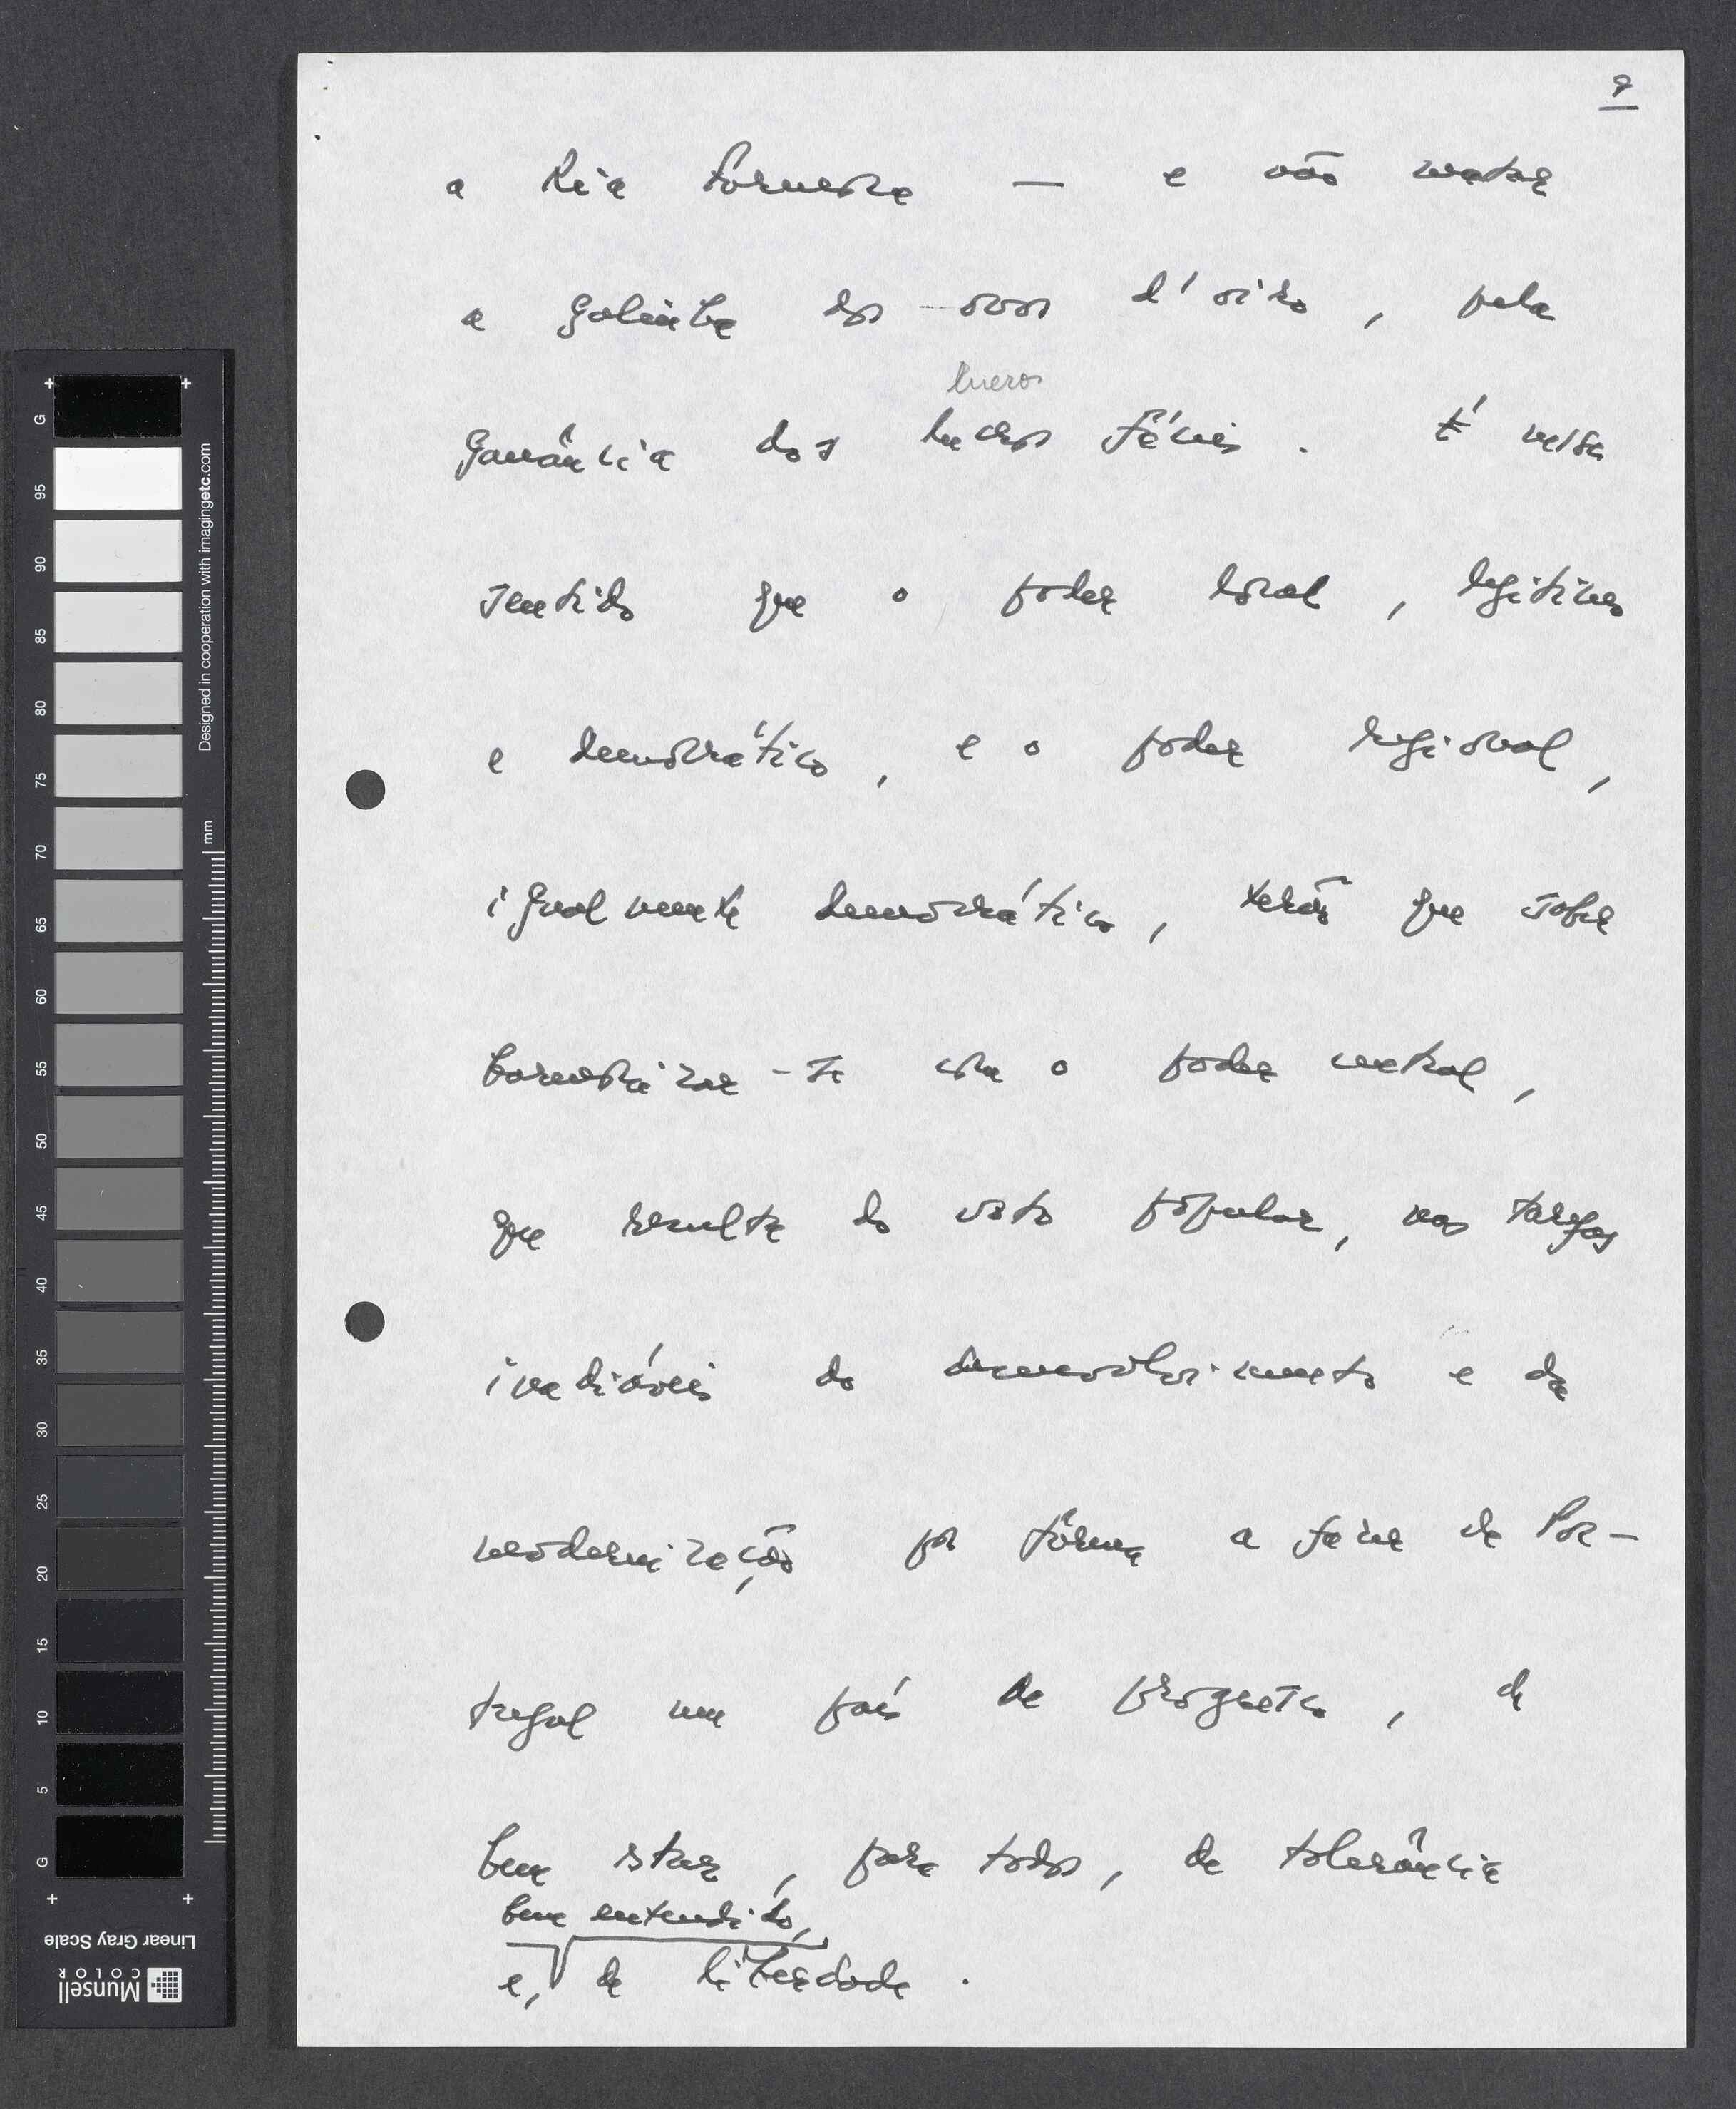 9
a Ria Formosa — e não matar
a galinha dos ovos d'oiro, pela
lucros
ganância dos lucros fáceis. É nesse
sentido que o poder local, legítimo
e democrático, e o poder regional,
igualmente democrático, terão que saber
harmonizar-se com o poder central,
que resulta do voto popular, nas tarefas
inadiáveis do desenvolvimento e da
modernização por forma a fazer de Por-
tugal um país de progresso, de
bem estar, para todos, de tolerância
bem entendido,
e, de liberdade.
G
95
90
85
80
75
70
65
60
55
50
45
40
35
30
25
20
15
10
5
G
mm
Designed in cooperation with imagingetc.com
Linear Gray Scale
Munsell
COLOR